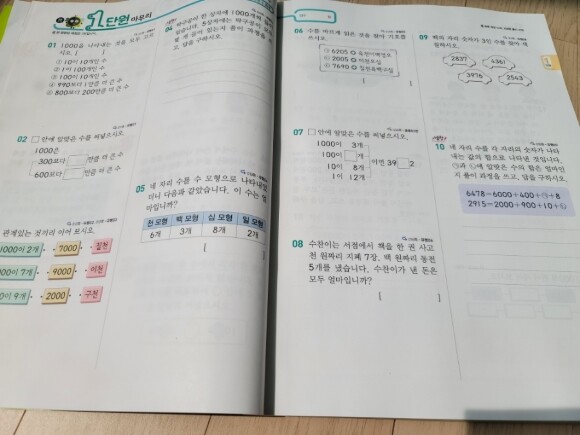 1단원 마무리
01 1000을 나타내는 것을 모두 고르
시오. [ ]
① 10이 10개인 수
② 1이 100개인 수
③ 100이 10개인 수
④ 990보다 1만큼 더 큰 수
⑤ 800보다 200만큼 더 큰 수
02 □ 안에 알맞은 수를 써넣으시오.
1000은
300보다 □만큼 더 큰 수
600보다 □만큼 더 큰 수
관계있는 것끼리 이어 보시오.
1000이 2개 7000 칠천
1000이 7개 9000 이천
이 9개 2000 구천
04 탁구공이 한 상자에 1000개씩 들어
있습니다. 5상자에는 탁구공이 모두
몇 개 들어 있는지 풀이 과정을 쓰
고, 답을 구하시오.
05 네 자리 수를 수 모형으로 나타내었
더니 다음과 같았습니다. 이 수는 얼
마입니까?
천 모형 백 모형 십 모형 일 모형
6개 3개 8개 2개
[ ]
06 수를 바르게 읽은 것을 찾아 기호를
쓰시오.
6205 육천이백영오
2005 이천오십
7690 칠천육백구십
[ ]
07 □ 안에 알맞은 수를 써넣으시오.
1000이 3개
100이 □개
10이 8개
1이 12개
이면 39□2
08 수찬이는 서점에서 책을 한 권 사고
천 원짜리 지폐 7장, 백 원짜리 동전
5개를 냈습니다. 수찬이가 낸 돈은
모두 얼마입니까?
[ ]
09 백의 자리 숫자가 3인 수를 찾아 색
칠하시오.
2837 4361
3976 2543
10 네 자리 수를 각 자리의 숫자가 나타
내는 값의 합으로 나타낸 것입니다.
㉠과 ㉡에 알맞은 수의 합은 얼마인
지 풀이 과정을 쓰고, 답을 구하시오.
6478=6000+400+㉠+8
2915=2000+900+10+㉡